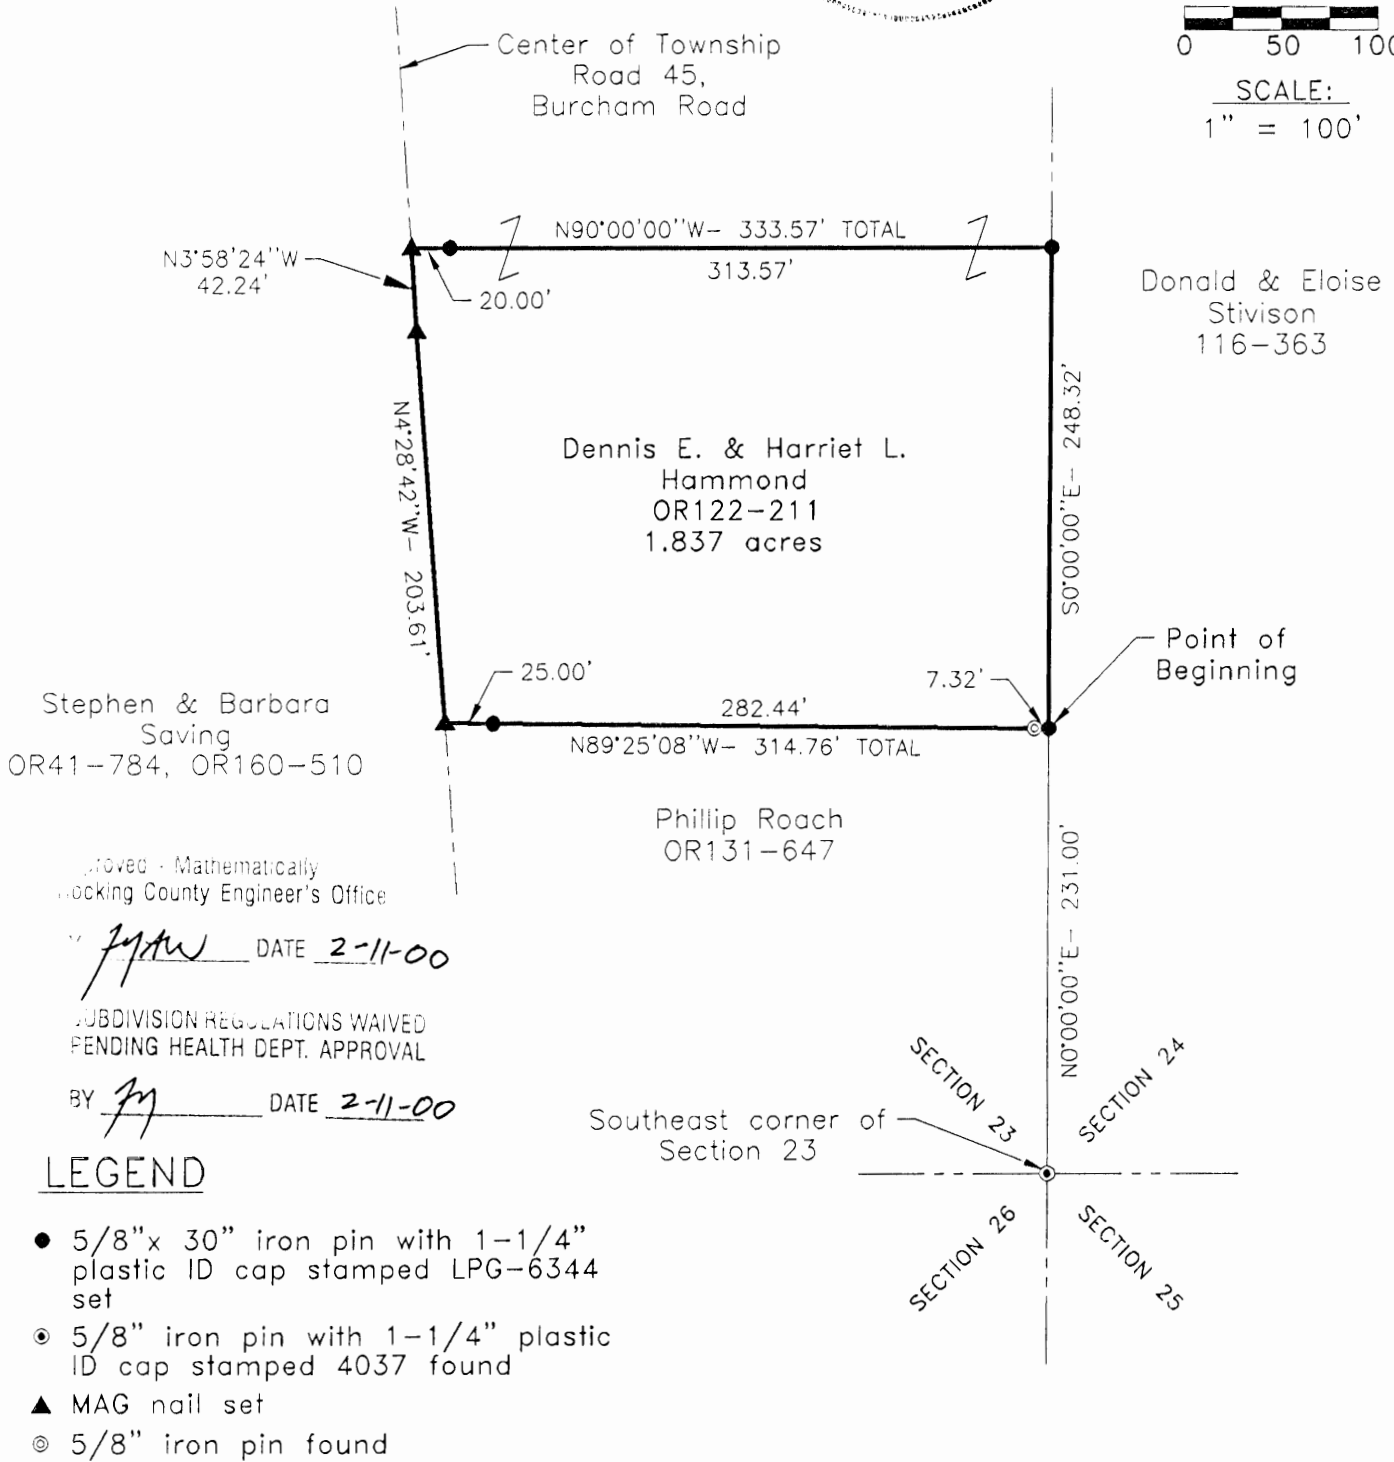 Center of Township
Road 45,
Burcham Road
0 50 100
SCALE:
1" = 100'
N90°00'00"W- 333.57' TOTAL
313.57'
N3°58'24"W
42.24'
20.00'
Donald & Eloise
Stivison
116-363
S0°00'00"E- 248.32'
N4°28'42"W- 203.61'
Dennis E. & Harriet L.
Hammond
OR122-211
1.837 acres
Point of
Beginning
25.00'
7.32'
282.44'
N89°25'08"W- 314.76' TOTAL
Stephen & Barbara
Saving
OR41-784, OR160-510
Phillip Roach
OR131-647
N0°00'00"E- 231.00'
roved - Mathematically
ocking County Engineer's Office
DATE 2-11-00
UBDIVISION REGULATIONS WAIVED
PENDING HEALTH DEPT. APPROVAL
BY DATE 2-11-00
SECTION 23
SECTION 24
Southeast corner of
Section 23
SECTION 26
SECTION 25
LEGEND
5/8"x 30" iron pin with 1-1/4"
plastic ID cap stamped LPG-6344
set
5/8" iron pin with 1-1/4" plastic
ID cap stamped 4037 found
MAG nail set
5/8" iron pin found